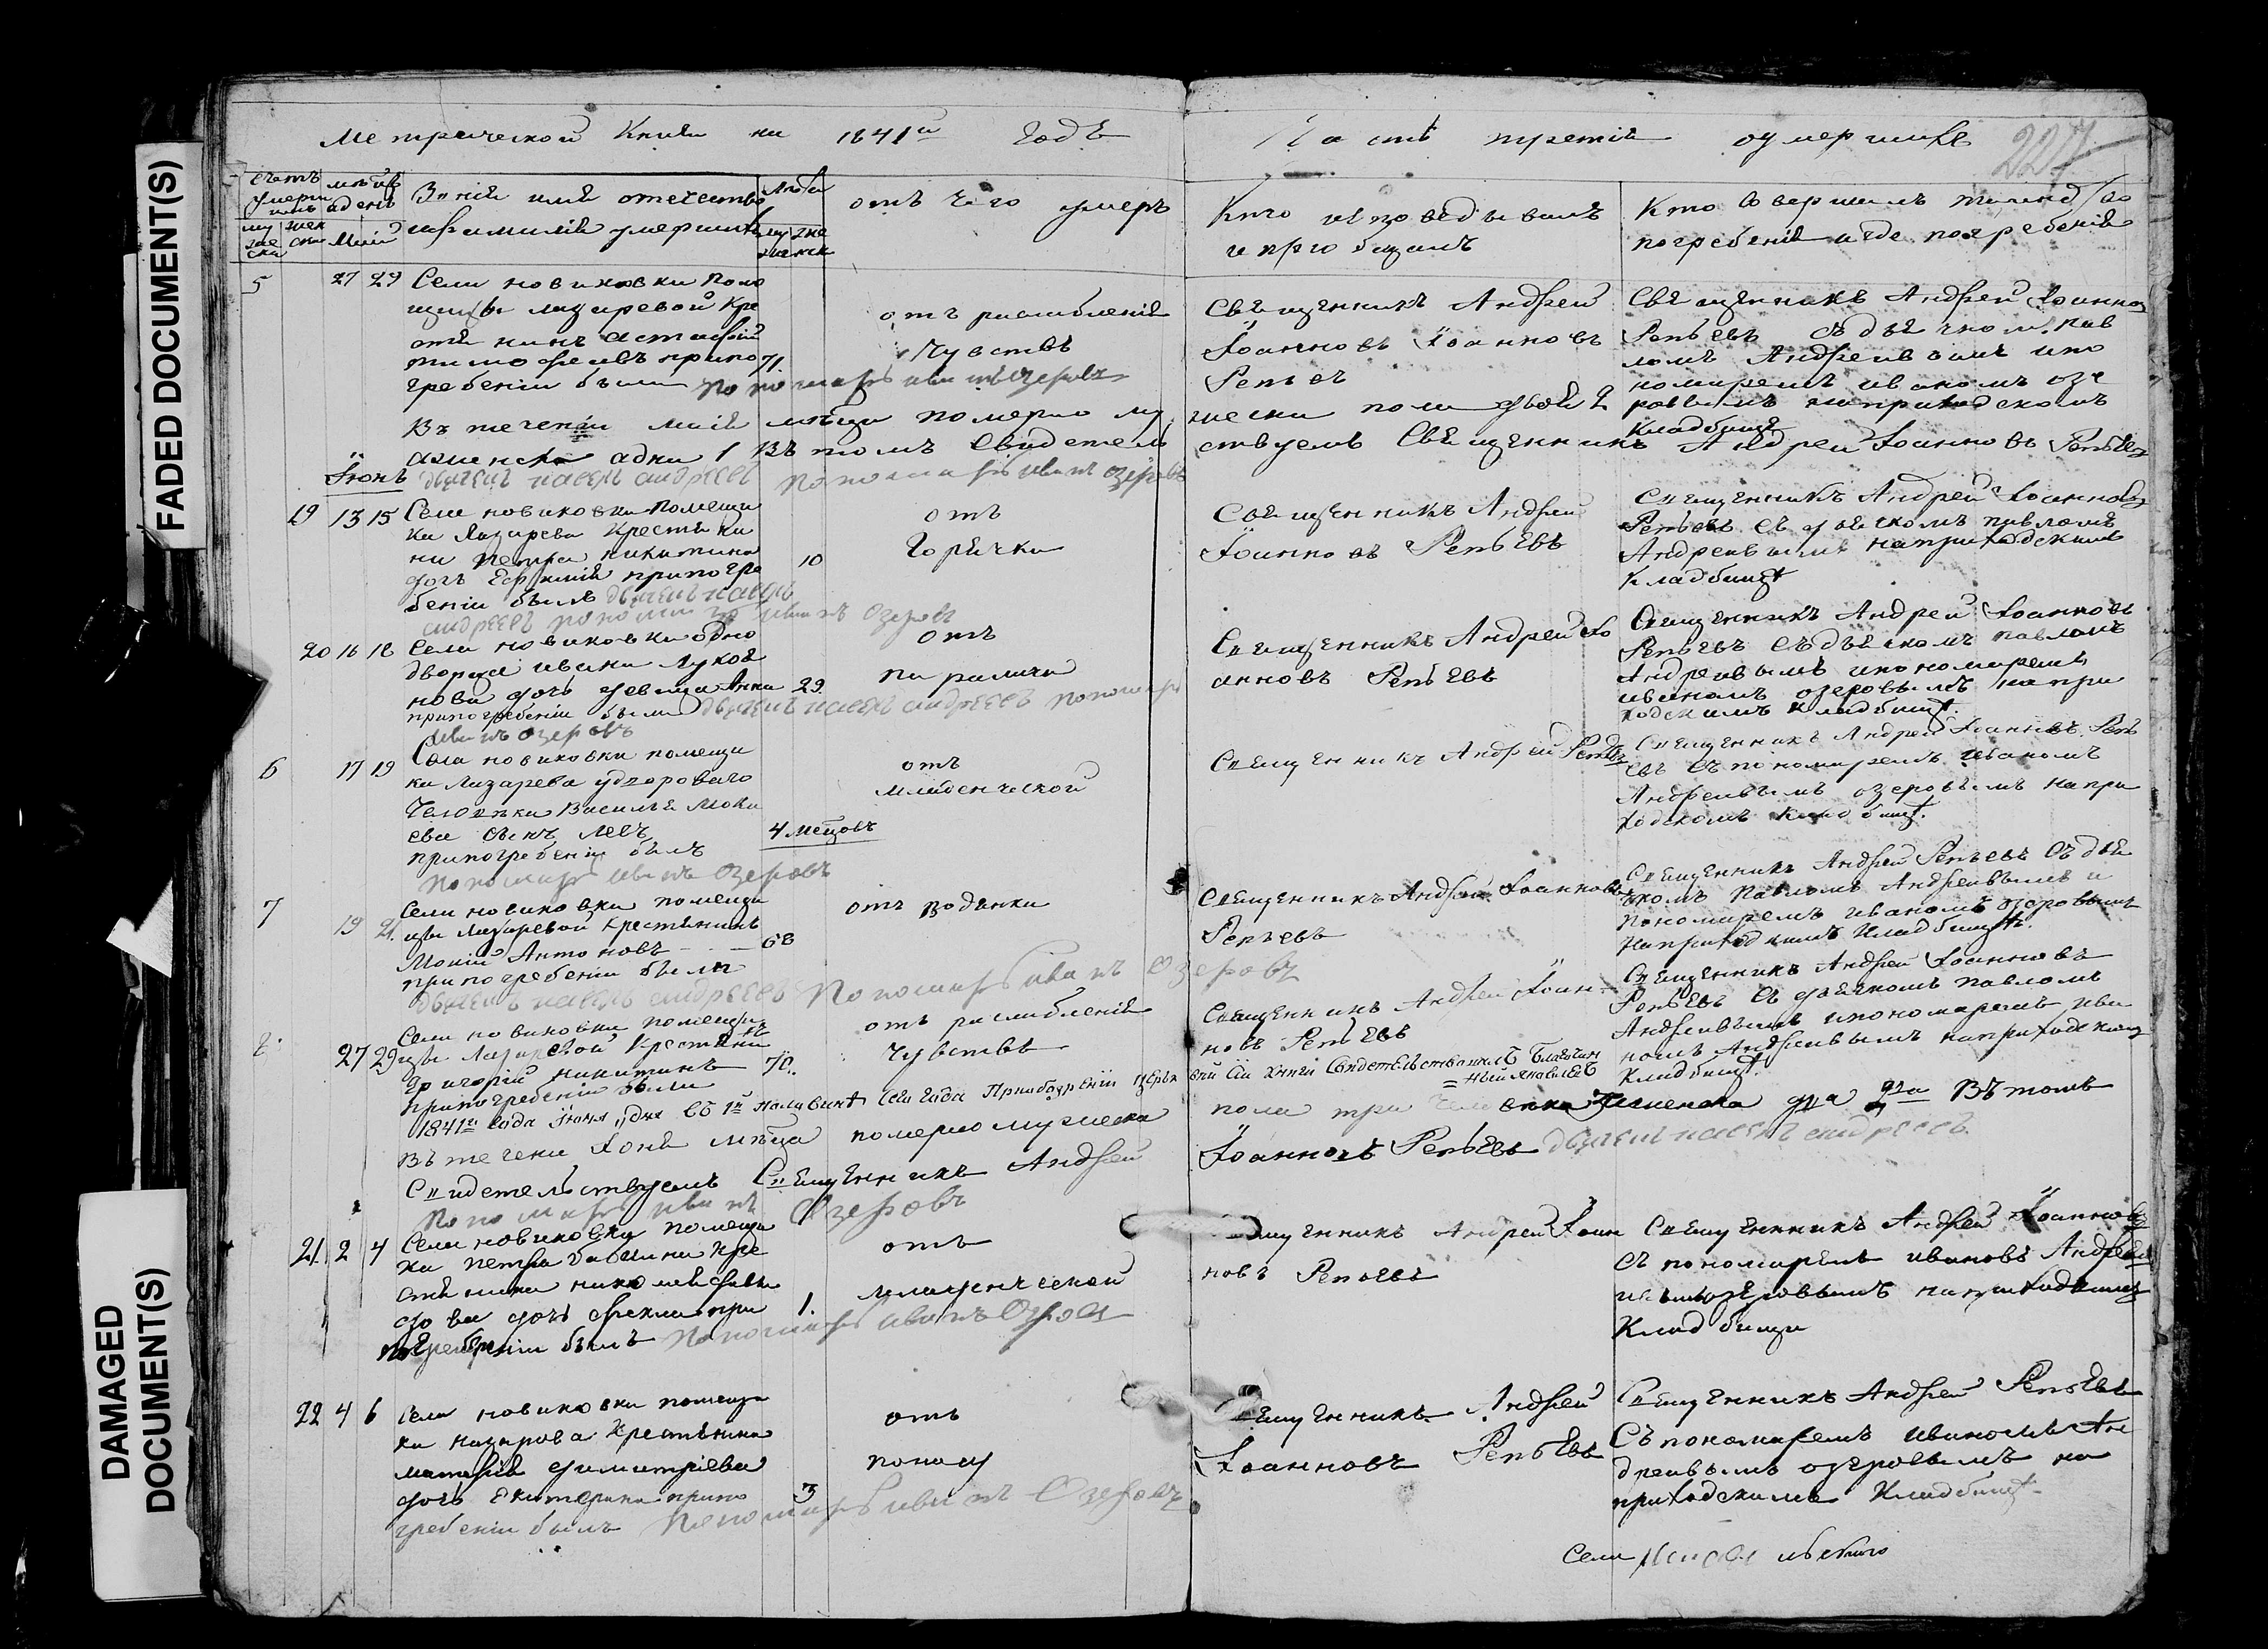 FADED DOCUMENT(S)
DAMAGED
DOCUMENT(S)
Метрической Книги на 1841й Годъ
Часть третія оумершихъ
227
Званіе имя отечество
и фамилія умершихъ
Лѣта
отъ чего умеръ
Кто исповѣдывалъ
и пріобщалъ
Кто совершалъ
погребеніе и где погребены
Май
5 27 29 Села новиковки помѣ
щицы лазаревой Кре
стьянинъ Астафій
тимофеевъ припо 71.
гребеніи были пономарь иванъ Озеровъ
отъ разслабленія
Чувствъ
Священникъ Андрей
Іоанновъ Іоанновъ
Репьевъ
Священникъ Андрей Іоаннов
Репьевъ съ дьячкомъ пав
ломъ Андреевымъ и по
номаремъ иваномъ озе
ровымъ на приходскомъ
Кладбище
Въ теченіи Маія мѣсяца померло му
жеска пола двой 2
а женска адна 1 Въ томъ Свидетель
ствуемъ Священникъ Андрей Іоанновъ Репьевъ
Іюнь дьячекъ павелъ андреевъ пономарь иванъ озеровъ
19 13 15 Села новиковки помещи
ка Лазарева Крестьяни
на Петра никитина
дочь Ефимія припогре 10
беніи былъ дьячекъ павелъ
андреевъ пономарь иванъ Озеровъ
отъ
Горячки
Священникъ Андрей
Іоанновъ Репьевъ
Священникъ Андрей Іоанновъ
Репьевъ съ дьячкомъ павломъ
Андреевымъ на приходскимъ
Кладбище
20 16 18 Села новиковки одно
дворца ивана Лукоя
нова дочь девица Анна 29.
припогребеніи были дьячекъ павелъ андреевъ пономарь
иванъ озеровъ
отъ
паралича
Священникъ Андрей Іо
анновъ Репьевъ
Священникъ Андрей Іоанновъ
Репьевъ съ дьячкомъ павломъ
Андреевымъ и пономаремъ
иваномъ озеровымъ на при
ходскимъ кладбище.
6 17 19 Села новиковки помещи
ка Лазарева удвороваго
Человека Василья Моки
ева сынъ Левъ 4 месяцовъ
припогребеніи былъ
пономарь иванъ Озеровъ
отъ
младенческой
Священникъ Андрей Репьевъ
Священникъ Андрей Іоанновъ Репь
евъ съ пономаремъ иваномъ
Андреевымъ озеровымъ на при
ходскомъ кладбище.
7 19 21. Села новиковки помещи
цы Лазаревой Крестьянинъ
Мокій Антоновъ 68
припогребеніи были
дьячекъ павелъ андреевъ Пономарь иванъ Озеровъ
отъ водянки
Священникъ Андрей Іоанновъ
Репьевъ
Священникъ Андрей Репьевъ съ дья
чкомъ Павломъ Андреевымъ и
Пономаремъ иваномъ озеровымъ
На приходскимъ Кладбище.
8. 27 29 Села новиковки помещи
цы Лазаревой Крестьянинъ
Григорій никитинъ 70.
припогребеніи были
отъ разслабленія
Чувствъ
Священникъ Андрей Іоан
новъ Репьевъ
Священникъ Андрей Іоанновъ
Репьевъ съ дьячкомъ павломъ
Андреевымъ и пономаремъ ива
номъ Андреевымъ на приходскимъ
Кладбище.
1841го Года Іюня дня въ 1й половинѣ сего Года При обозреніи церк
вей сіи Книги Свидетельствовалъ Благочин
ный
Въ течени Іюня мѣсяца померло мужеска
пола три Человека Женска два 2 Въ томъ
Свидетельствуемъ Священникъ Андрей
Іоанновъ Репьевъ дьячекъ павелъ андреевъ.
Пономарь иванъ Озеровъ
21. 2 4 Села новиковки помещи
ка петра кре
стьянина
дова дочь фекла при 1.
погребеніи былъ пономарь иванъ Озеровъ
отъ
младенческой
Священникъ Андрей Іоан
новъ Репьевъ
Священникъ Андрей Іоанновъ
съ пономаремъ ивановъ Андреев
озеровымъ на приходскимъ
Кладбище
22 4 6 Села новиковки помещи
ка Крестьянина
матфея димитріева
дочь Екатерина припо 3
гребеніи былъ пономарь иванъ Озеровъ
отъ
поносу
Священникъ Андрей
Іоанновъ Репьевъ
Священникъ Андрей Репьевъ
Съ пономаремъ иваномъ Ан
дреевымъ озеровымъ на
приходскимъ Кладбище
Села